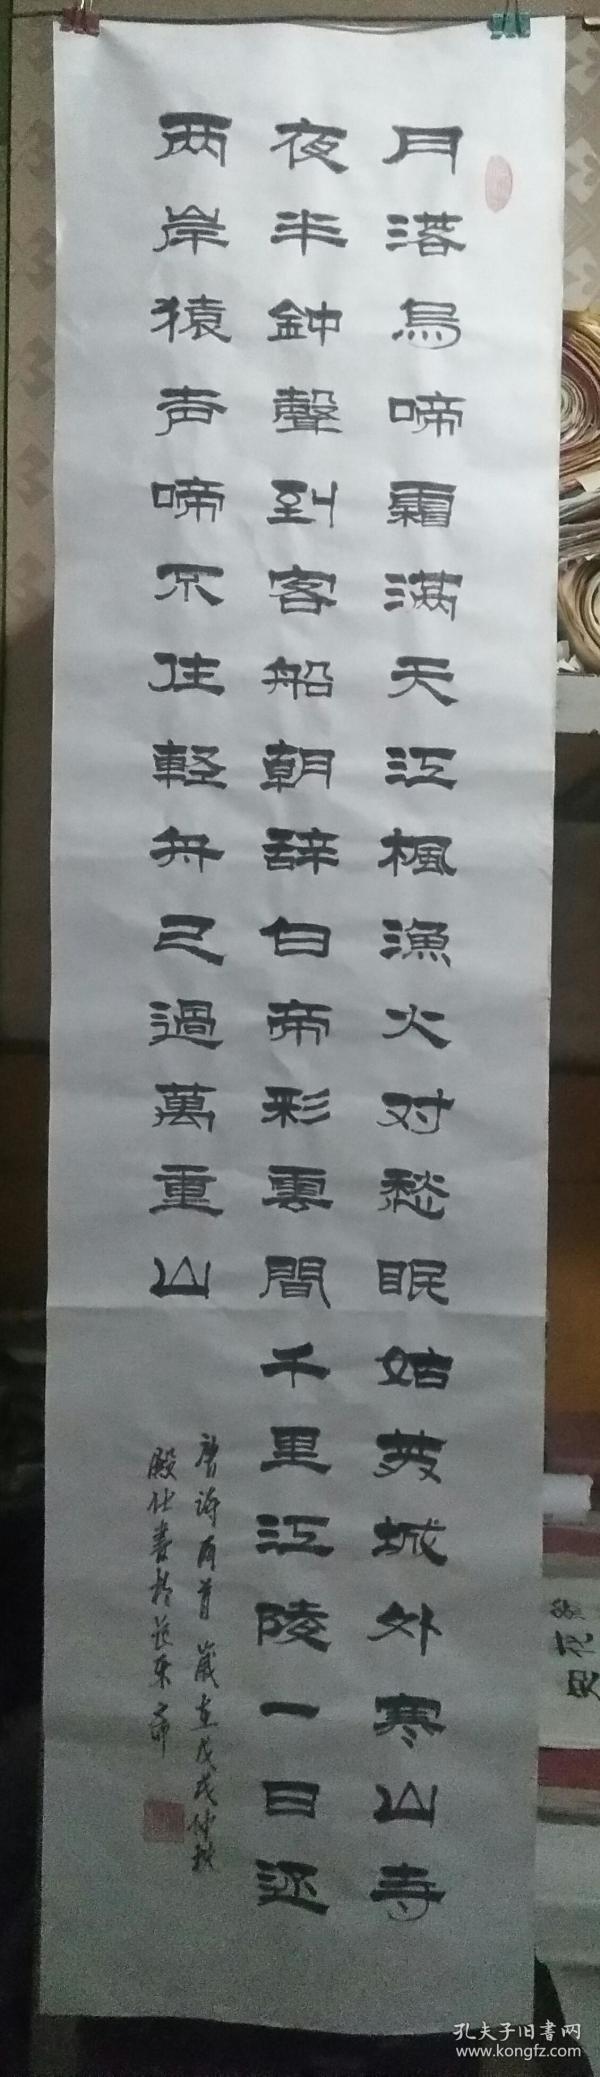 月落烏啼霜滿天江楓漁火对愁眠姑蘇城外寒山寺
夜半鈡聲到客船朝辞白帝彩雲間千里江陵一日还
两岸猿声啼不住軽舟已過萬重山
唐诗两首 歲在戊戌仲秋
殿仕書於
孔夫子旧書网
www.kongfz.com